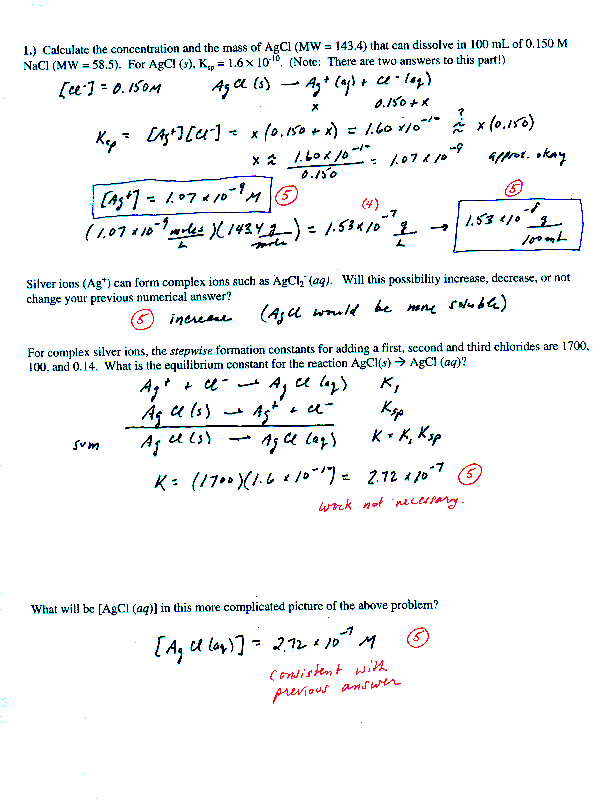 1.) Calculate the concentration and the mass of AgCl (MW = 143.4) that can dissolve in 100 mL of 0.150 M
NaCl (MW = 58.5). For AgCl (s), Ksp = 1.6 × 10⁻¹⁰. (Note: There are two answers to this part!)
[Cl⁻] = 0.150M AgCl (s) → Ag⁺ (aq) + Cl⁻ (aq)
x 0.150 + x
Ksp = [Ag⁺][Cl⁻] = x (0.150 + x) = 1.60 x10⁻¹⁰ ?≈ x (0.150)
x ≈ 1.60 x 10⁻¹⁰ / 0.150 = 1.07 x 10⁻⁹ approx. okay
[Ag⁺] = 1.07 x 10⁻⁹ M (5) (4) (5)
(1.07 x 10⁻⁹ moles/L)(143.4 g/mole) = 1.53 x 10⁻⁷ g/L → 1.53 x 10⁻⁸ g/100mL
Silver ions (Ag⁺) can form complex ions such as AgCl₂⁻(aq). Will this possibility increase, decrease, or not
change your previous numerical answer?
(5) increase (AgCl would be more soluble)
For complex silver ions, the stepwise formation constants for adding a first, second and third chlorides are 1700,
100, and 0.14. What is the equilibrium constant for the reaction AgCl(s) → AgCl (aq)?
Ag⁺ + Cl⁻ → AgCl (aq) K₁
AgCl (s) → Ag⁺ + Cl⁻ Ksp
sum AgCl (s) → AgCl (aq) K = K₁ Ksp
K = (1700)(1.6 x 10⁻¹⁰) = 2.72 x 10⁻⁷ (5)
work not necessary.
What will be [AgCl (aq)] in this more complicated picture of the above problem?
[AgCl (aq)] = 2.72 x 10⁻⁷ M (5)
consistent with
previous answer